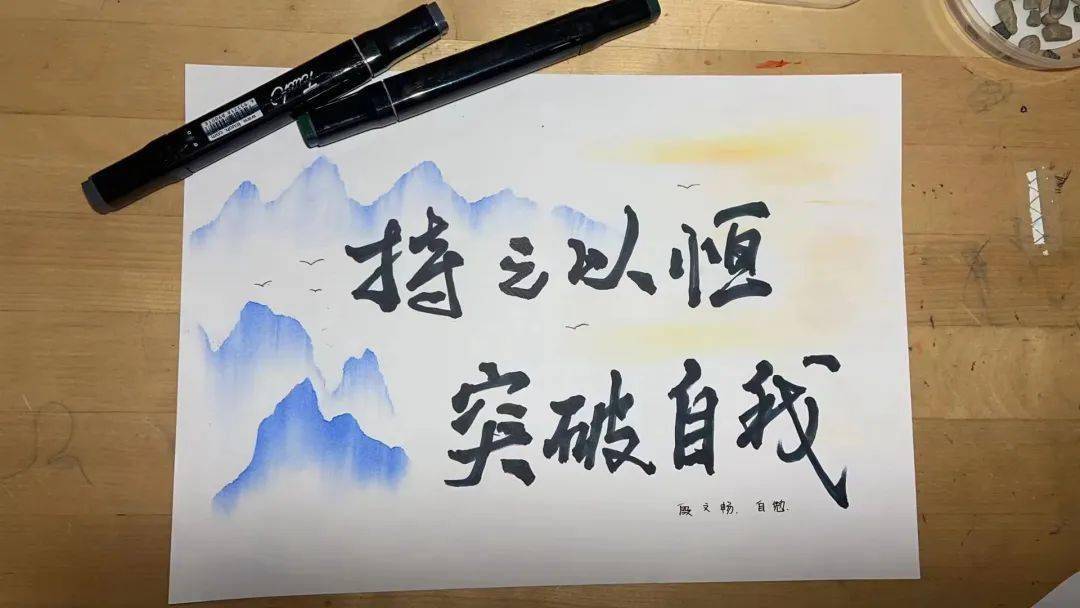 持之以恒
突破自我
段文畅.自勉.
Touch